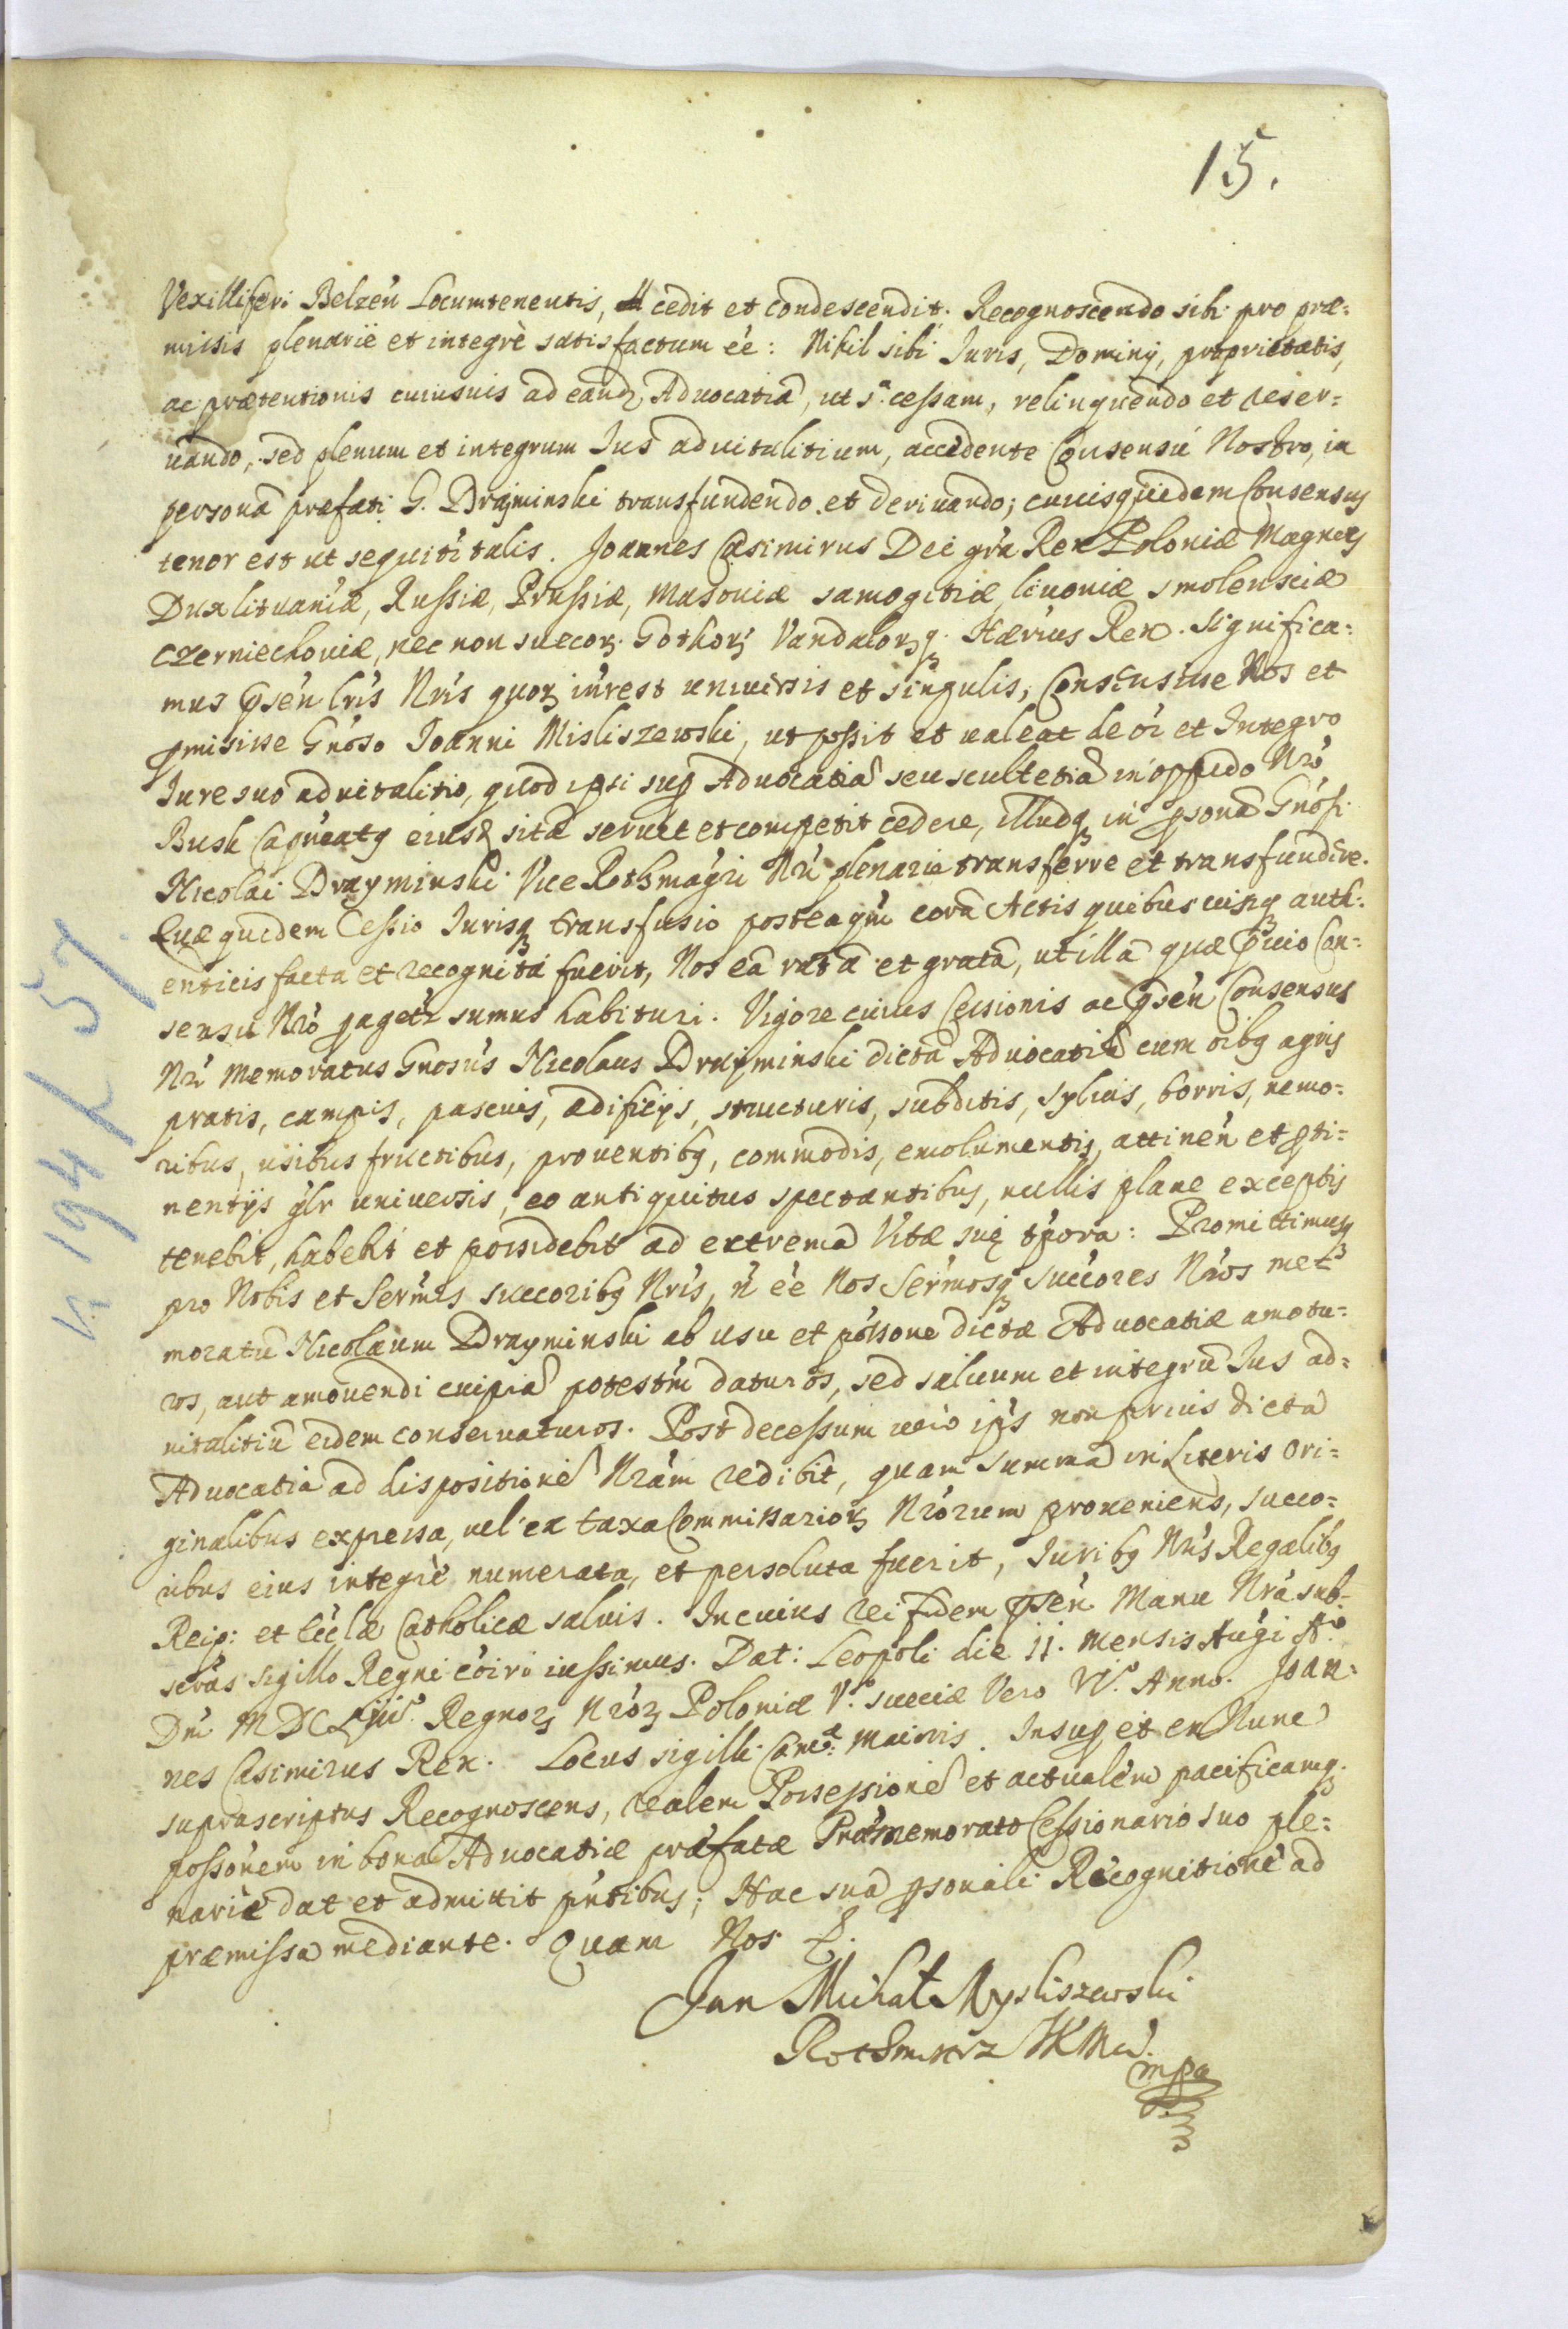 15.
Vexilliferi Belzeń Locumtenentis, cedit et condescendit. Recognoscendo sibi pro præ=
missis plenariè et integrè satisfactum éé: Nihil sibi Iuris, Dominij, proprietatis,
ac prætentionis cuiusuis ad eandȝ Aduocatiã, ut sᵃ cessam, relinquendo et reser=
uando, sed plenum et integrum Ius aduitalitium, accedente Consensu Nostro, in
personã præfati G. Drayminski transfundendo et deriuando; cuiusquidem Consensus
tenor est ut sequit́ talis. Joannes Casimirus Dei gŕa Rex Poloniæ Magnus
Dux lituaniæ, Russiæ, Prussiæ, Masouiæ samogitiæ, liuoniæ smolensciæ
czerniechouiæ, nec non suecorꝫ Gothorꝫ Vandalorꝫqꝫ Hærius Rex. Significa=
mus p̃seń lŕis Nŕis quorꝫ inŕest uniuersis et singulis, Consensisse Nos et
pmisisse Gnoso Joanni Misliszewski, ut possit et ualeat de oi et Integro
Iure suo aduitalitio, quod ipsi sup Aduocatiã seu scultetiã in oppido Nŕo
Busk Capneatq eiusd sitã seruit et competit cedere, illudqꝫ in psonã Gnosi
Nicolai Drayminski Vice Rothmagŕi Nŕi plenarie transferre et transfundere.
Quæ quidem Cessio Iurisqꝫ transfusio posteaqm̃ corã Actis quibuscuisqꝫ auth=
enticis facta et recognita fuerit, Nos eã ratã et gratã, ut illã quæ p̃uio Con=
sensu Nŕo pagetŕ sumus habituri. Vigore cuius Cessionis ac p̃seń Consensus
Nŕi memoratus Gnosus Nicolaus Drayminski dictã Aduocatiã cum oibꝫ agris
pratis, campis, pascuis, ædificijs, structuris, subditis, syluis, borris, nemo=
ribus, usibus fructibus, prouentibꝫ, commodis, emolumentis, attineń et pti=
nentijs gl̃r uniuersis, eo antiquitus spectantibus, nullis plane exceptis
tenebit, habebit et possidebit ad extrema Vitæ suę t́pora: Promittimusqꝫ
pro Nobis et Serm̃is succoribꝫ Nŕis, ń éé Nos Serm̃osqꝫ Succores Nŕos me=
moratũ Nicolaum Drayminski ab usu et possone dictæ Aduocatiæ amotu=
ros, aut amouendi cuipiã potestm̃ daturos, sed saluum et integrũ Ius ad=
uitalitiũ eidem conseruaturos. Post decessum uero ipŝs non prius dicta
Aduocatia ad dispositionẽ Nŕam redibit, quam summa in Literis ori=
ginalibus expressa, uel ex taxa Commissariorꝫ Nŕorum proueniens, succo=
ribus eius integrè numerata, et persoluta fuerit, Iuribꝫ Nŕis Regalibꝫ
Reip: et Ecclæ Catholicæ saluis. In cuius rei fidem p̃seń Manu Nŕa sub=
scŕas sigillo Regni coiri iussimus. Dat: Leopoli die 11. mensis Augi Aᵒ
Dńi MDCLIIIᵒ Regnorꝫ Nŕorꝫ Poloniæ Vᵒ. sueciæ Vero VIᵒ. Anno. Joan=
nes Casimirus Rex. Locus sigilli Canc̃æ: maioris. Insup et ex Nunc
suprascriptus Recognoscens, realem Possessionẽ et actualem pacificamqꝫ
possonem in bona Aduocatiæ præfatæ Præmemorato Cessionario suo ple=
nariè dat et admittit pńtibus; Hac sua psonali Recognitione ad
præmissa mediante. Quam Nos &.
Jan Michał Mysliszewski
Rothmirz JKMci.
mpa